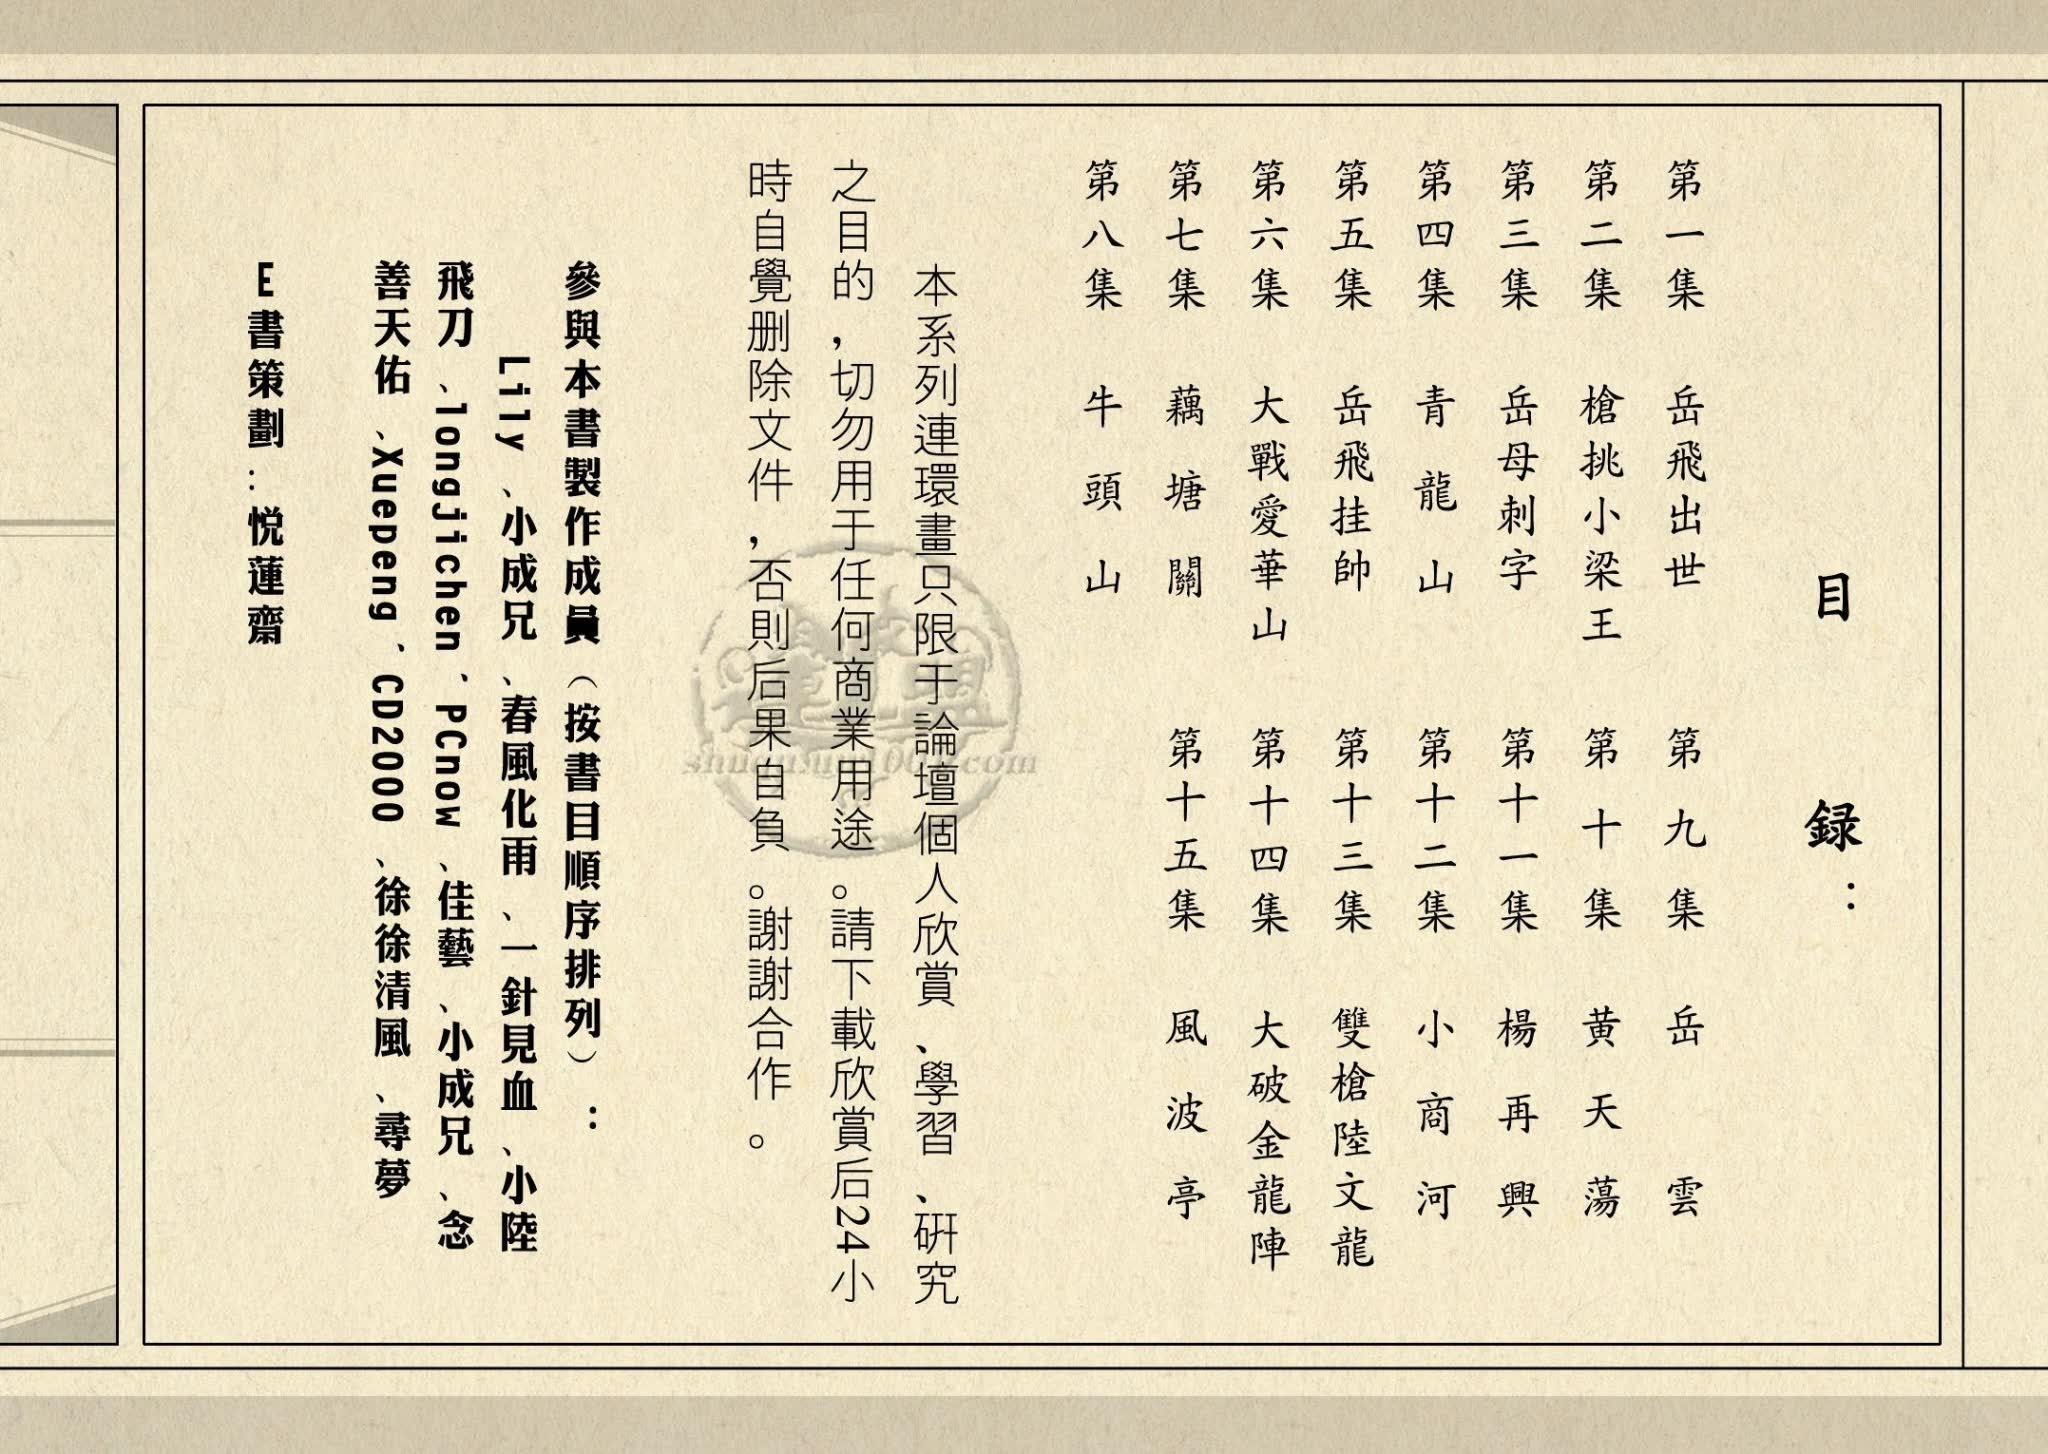 目錄：
第一集 岳飛出世
第二集 槍挑小梁王
第三集 岳母刺字
第四集 青龍山
第五集 岳飛挂帥
第六集 大戰愛華山
第七集 藕塘關
第八集 牛頭山
第九集 岳雲
第十集 黄天蕩
第十一集 楊再興
第十二集 小商河
第十三集 雙槍陸文龍
第十四集 大破金龍陣
第十五集 風波亭
本系列連環畫只限于論壇個人欣賞、學習、研究
之目的，切勿用于任何商業用途。請下載欣賞后24小
時自覺删除文件，否則后果自負。謝謝合作。
參與本書製作成員（按書目順序排列）：
Lily、小成兄、春風化雨、一針見血、小陸
飛刀、longjichen、PCnow、佳藝、小成兄、念
善天佑、Xuepeng、CD2000、徐徐清風、尋夢
E書策劃：悦蓮齋